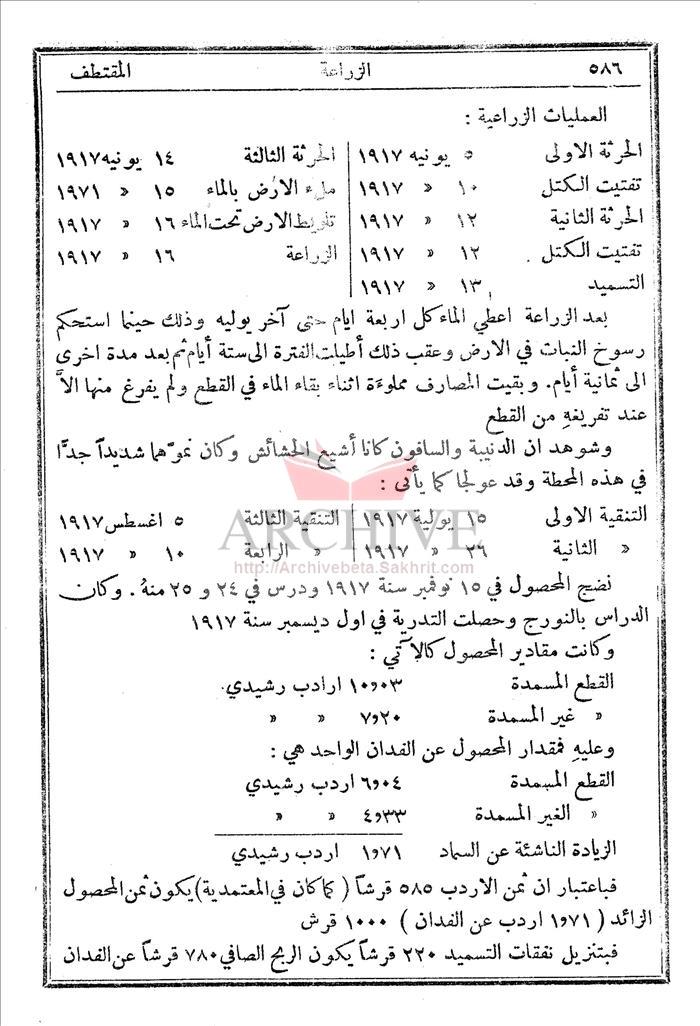 ٥٨٦ الزراعة المقتطف
العمليات الزراعية :
الحرثة الاولى ٥ يونيه ١٩١٧ الحرثة الثالثة ١٤ يونيه ١٩١٧
تفتيت الكتل ١٠ » ١٩١٧ ملء الارض بالماء ١٥ » ١٩٧١
الحرثة الثانية ١٢ » ١٩١٧ تلويط الارض تحت الماء ١٦ » ١٩١٧
تفتيت الكتل ١٢ » ١٩١٧ الزراعة ١٦ » ١٩١٧
التسميد ١٣ » ١٩١٧
بعد الزراعة اعطي الماء كل اربعة ايام حتى آخر يوليه وذلك حينما استحكم
رسوخ النبات في الارض وعقب ذلك أطيلت الفترة الى ستة أيام ثم بعد مدة اخرى
الى ثمانية أيام. وبقيت المصارف مملوءة اثناء بقاء الماء في القطع ولم يفرغ منها الاَّ
عند تفريغهِ من القطع
وشوهد ان الدنيبة والسافون كانا أشيع الحشائش وكان نموّهما شديداً جدًّا
في هذه المحطة وقد عولجا كما يأتي :
التنقية الاولى ١٥ يولية ١٩١٧ التنقية الثالثة ٥ اغسطس ١٩١٧
» الثانية ٢٦ » ١٩١٧ » الرابعة ١٠ » ١٩١٧
ARCHIVE
http://Archivebeta.Sakhrit.com
نضج المحصول في ١٥ نوفمبر سنة ١٩١٧ ودرس في ٢٤ و ٢٥ منهُ . وكان
الدراس بالنورج وحصلت التدرية في اول ديسمبر سنة ١٩١٧
وكانت مقادير المحصول كالآتي :
القطع المسمدة ١٠و٠٣ ارادب رشيدي
» غير المسمدة ٧و٢٠ » »
وعليهِ فمقدار المحصول عن الفدان الواحد هي :
القطع المسمدة ٦و٠٤ اردب رشيدي
» الغير المسمدة ٤و٣٣ » »
الزيادة الناشئة عن السماد ١و٧١ اردب رشيدي
فباعتبار ان ثمن الاردب ٥٨٥ قرشاً ( كما كان في المعتمدية ) يكون ثمن المحصول
الزائد ( ١و٧١ اردب عن الفدان ) ١٠٠٠ قرش
فبتنزيل نفقات التسميد ٢٢٠ قرشاً يكون الربح الصافي ٧٨٠ قرشاً عن الفدان